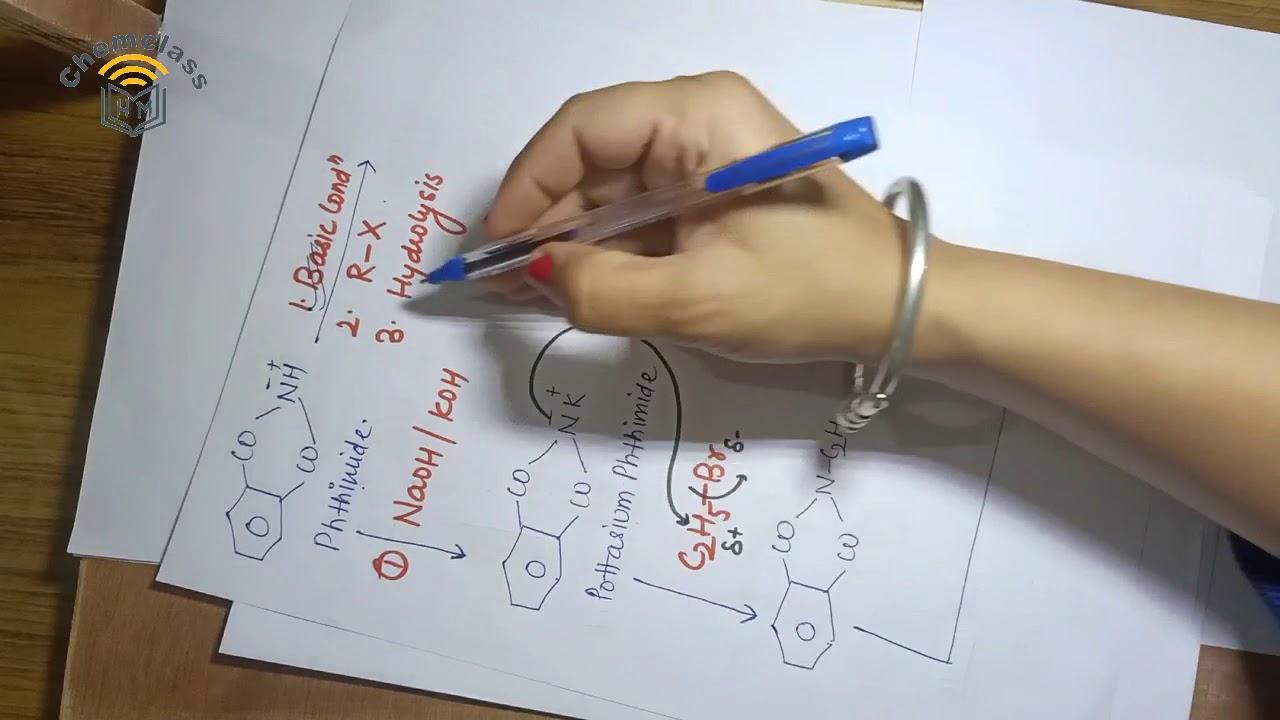 Chemclass
HM
CO
NH
- +
CO
Phthimide.
1. Basic Condⁿ
2. R-X.
3. Hydrolysis
① NaOH/KOH
CO
N K
- +
CO
Pottasium Phthimide
C2H5-Br
δ+ δ-
CO
N-C2H
CO